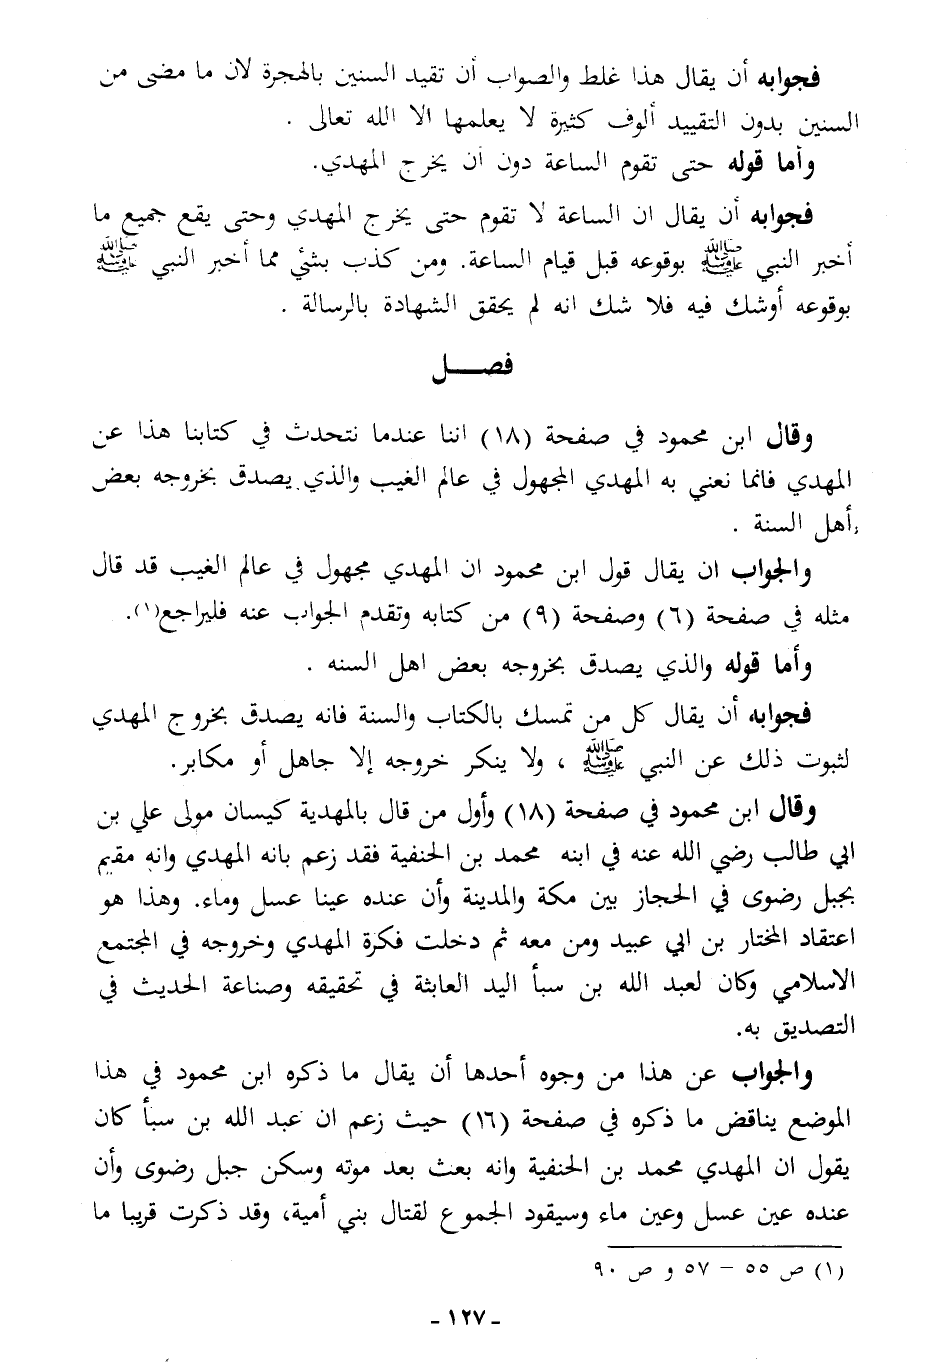 فجوابه أن يقال هذا غلط والصواب أن تقيد السنين بالهجرة لأن ما مضى من
السنين بدون التقييد ألوف كثيرة لا يعلمها الا الله تعالى .
وأما قوله حتى تقوم الساعة دون أن يخرج المهدي.
فجوابه أن يقال ان الساعة لا تقوم حتى يخرج المهدي وحتى يقع جميع ما
أخبر النبي ﷺ بوقوعه قبل قيام الساعة. ومن كذب بشئ مما أخبر النبي ﷺ
بوقوعه أوشك فيه فلا شك انه لم يحقق الشهادة بالرسالة .
فصــــل
وقال ابن محمود في صفحة (١٨) اننا عندما نتحدث في كتابنا هذا عن
المهدي فانما نعني به المهدي المجهول في عالم الغيب والذي يصدق بخروجه بعض
أهل السنة .
والجواب ان يقال قول ابن محمود ان المهدي مجهول في عالم الغيب قد قال
مثله في صفحة (٦) وصفحة (٩) من كتابه وتقدم الجواب عنه فليراجع(١).
وأما قوله والذي يصدق بخروجه بعض اهل السنه .
فجوابه أن يقال كل من تمسك بالكتاب والسنة فانه يصدق بخروج المهدي
لثبوت ذلك عن النبي ﷺ ، ولا ينكر خروجه إلا جاهل أو مكابر.
وقال ابن محمود في صفحة (١٨) وأول من قال بالمهدية كيسان مولى علي بن
ابي طالب رضي الله عنه في ابنه محمد بن الحنفية فقد زعم بانه المهدي وانه مقيم
بجبل رضوى في الحجاز بين مكة والمدينة وأن عنده عينا عسل وماء. وهذا هو
اعتقاد المختار بن ابي عبيد ومن معه ثم دخلت فكرة المهدي وخروجه في المجتمع
الاسلامي وكان لعبد الله بن سبأ اليد العابثة في تحقيقه وصناعة الحديث في
التصديق به.
والجواب عن هذا من وجوه أحدها أن يقال ما ذكره ابن محمود في هذا
الموضع يناقض ما ذكره في صفحة (١٦) حيث زعم ان عبد الله بن سبأ كان
يقول ان المهدي محمد بن الحنفية وانه بعث بعد موته وسكن جبل رضوى وأن
عنده عين عسل وعين ماء وسيقود الجموع لقتال بني أمية، وقد ذكرت قريبا ما
(١) ص ٥٥ – ٥٧ و ص ٩٠
- ١٢٧ -